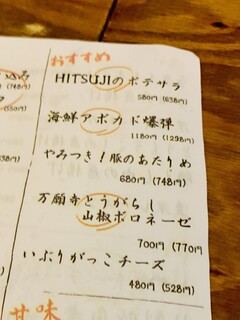 おすすめ
HITSUJIのポテサラ
580円(638円)
海鮮アボカド爆弾
1180円(1298円)
やみつき!豚のあたりめ
680円(748円)
万願寺とうがらし
山椒ボロネーゼ
700円(770円)
いぶりがっこチーズ
480円(528円)
甘味
込み
(748円)
(550円)